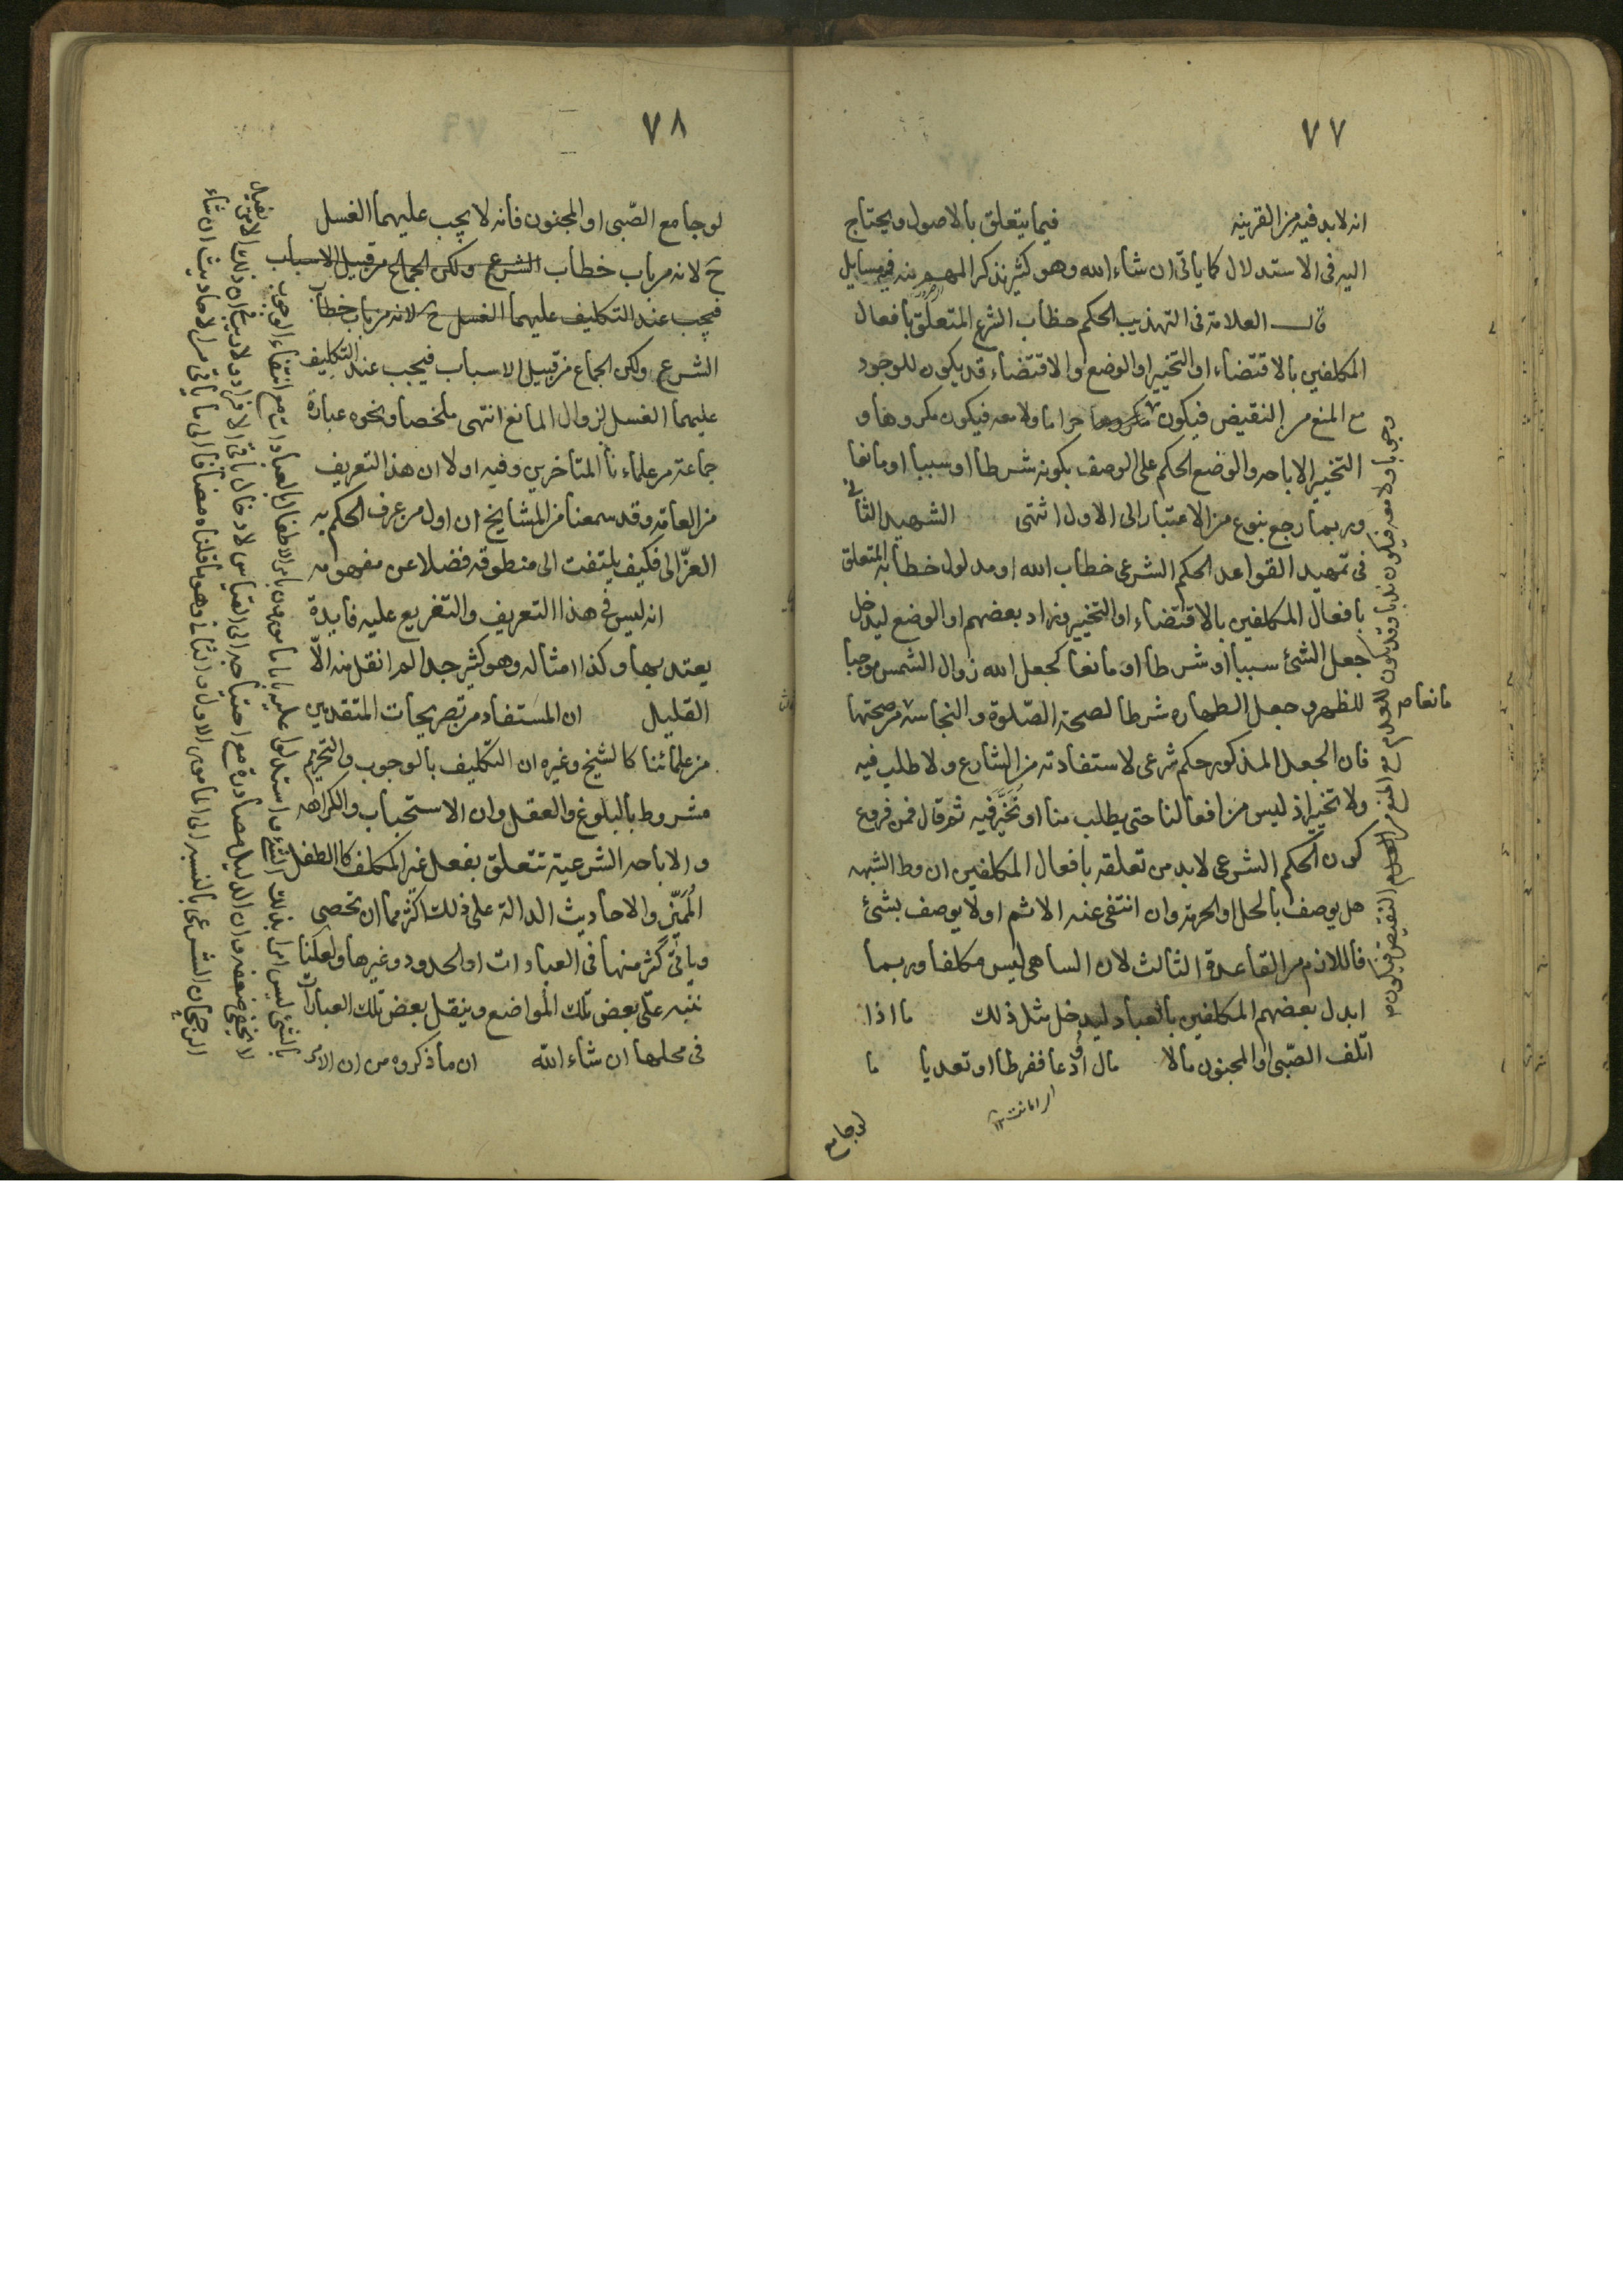 ٧٧
انه لا بد فيه من القرينه فيما يتعلق بالاصول ويحتاج
اليه فى الاستدلال كما ياتى ان شاء الله وهو كثير نذكر المهم منه فى مسايل
قال العلامة فى التهذيب الحكم خطاب الشرع المتعلق بافعال
المكلفين بالاقتضاء او التخيير او الوضع والاقتضاء قد يكون للوجود
مع المنع من النقيض فيكون حراما ولا معه فيكون مكروها و
التخيير الاباحه والوضع الحكم على الوصف بكونه شرطا او سببا او مانعا
وربما رجع بنوع من الاعتبار الى الاول انتهى الشهيد الثانى
فى تمهيد القواعد الحكم الشرعى خطاب الله او مدلول خطابه المتعلق
بافعال المكلفين بالاقتضاء او التخيير وزاد بعضهم او الوضع ليدخل
جعل الشئ سببا او شرطا او مانعا كجعل الله زوال الشمس موجبا
للظهر وجعل الطهاره شرطا لصحة الصلوة والنجاسة مانعا من صحتها
فان الجعل المذكور حكم شرعى لاستفادته من الشارع ولا طلب فيه
ولا تخيير اذ ليس من افعالنا حتى يطلب منا او نخير فيه ثم قال فمن فروع
كون الحكم الشرعى لا بد من تعلقه بافعال المكلفين ان وطا الشبهه
هل يوصف بالحل او الحرمة وان انتفى عنه الاثم او لا يوصف بشئ
فاللازم من القاعدة الثالث لان الساهى ليس مكلفا وربما
ابدل بعضهم المكلفين بالعباد ليدخل مثل ذلك ما اذا
اتلف الصبى او المجنون مالا مال او دعا ففرطا او تعديا ما
لو جامع
وجوبا ولا معه فيكون ندبا وقد يكون للعدم مع المنع من النقيض فيكون
٧٨
لو جامع الصبى او المجنون فانه لا يجب عليهما الغسل
ح لانه من باب خطاب الشرع ولكن الجماع من قبيل الاسباب
فيجب عند التكليف عليهما الغسل ح لانه من باب خطاب
الشرع ولكن الجماع من قبيل الاسباب فيجب عند التكليف
عليهما الغسل لزوال المانع انتهى ملخصا ونحوه عبارة
جماعة من علماءنا المتاخرين وفيه اولا ان هذا التعريف
من العامة وقد سمعنا من المشايخ ان اول من عرف الحكم به
الغزالى فكيف يلتفت الى منطوقه فضلا عن مفهومه
انه ليس فى هذا التعريف والتفريع عليه فايدة
يعتد بها وكذا امثاله وهو كثير جدا لم انقل منه الا
القليل ان المستفاد من تصريحات المتقدمين
من علمائنا كالشيخ وغيره ان التكليف بالوجوب والتحريم
مشروط بالبلوغ والعقل وان الاستحباب والكراهه
والاباحه الشرعية تتعلق بفعل غير المكلف كالطفل
المميز والاحاديث الدالة على ذلك اكثر مما ان تحصى
وياتى كثر منها فى العبادات او الحدود وغيرها ولعلنا
ننبه على بعض تلك المواضع وينقل بعض تلك العبارات
فى محلها ان شاء الله ان ما ذكروه من ان الامر
بالشئ ليس امرا بذلك الشئ واستدلوا عليه بانا مامورون بامر الاطفال بالعبادات مع انتفاء الوجوب
لا يخفى ضعفه وان الدليل مصادرة مع احتياجه الى القياس لادخال باقى الافراد ولان
الرجحان الشرعى بالنسبه الى المامور الاول والثانى وهو ما قلناه مضافا الى ما ياتى من الاحاديث ان شاء